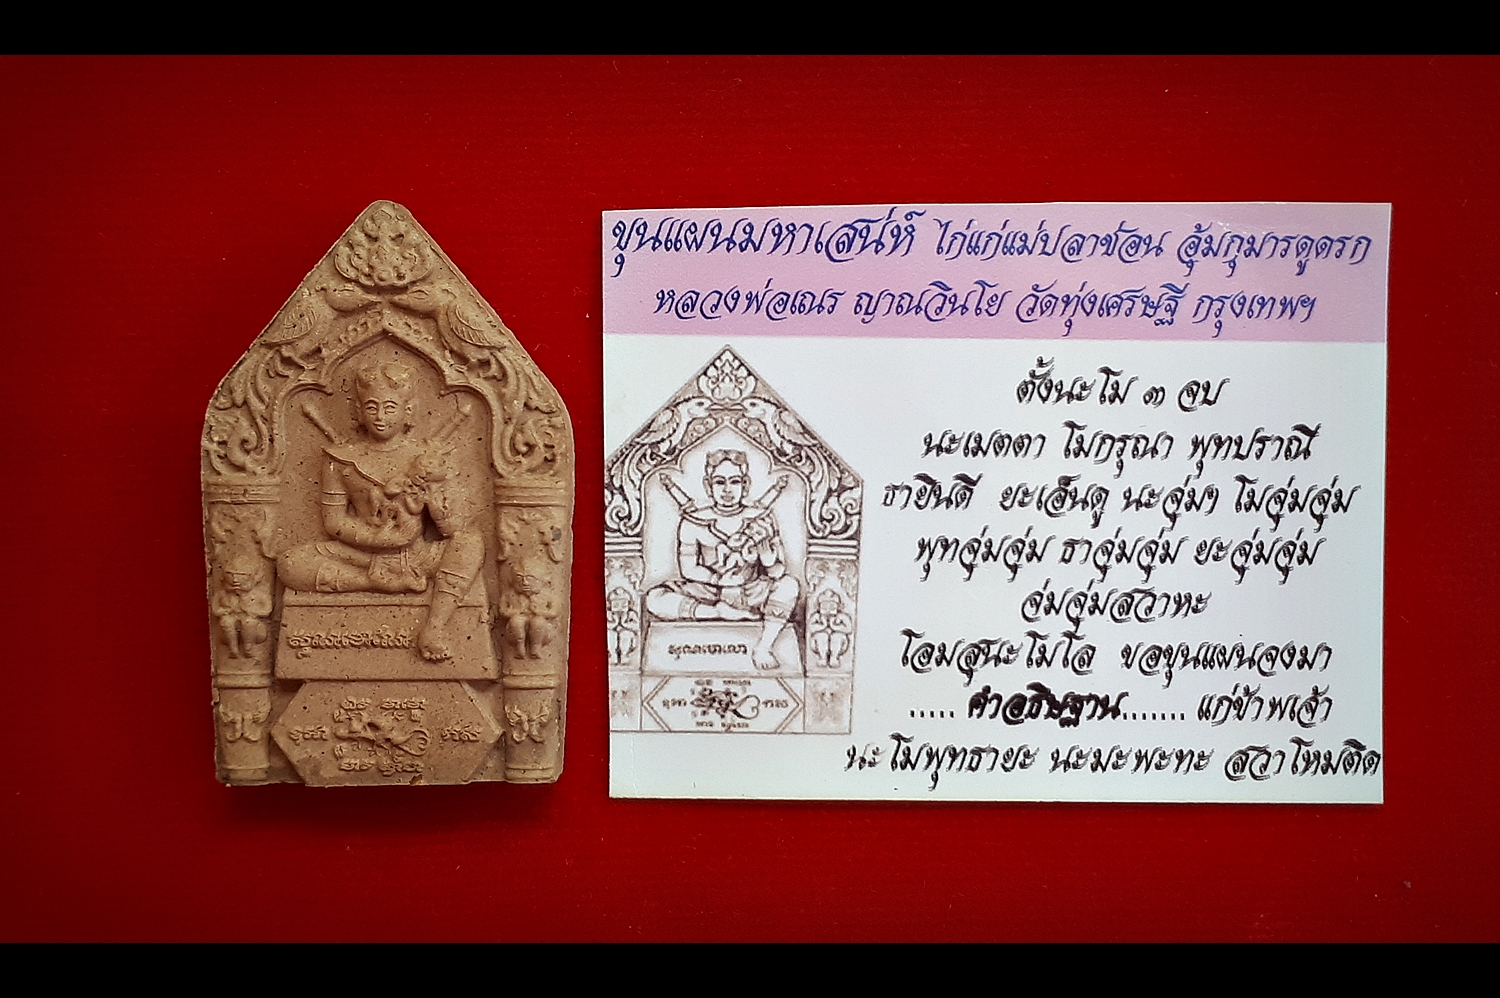 ขุนแผนมหาเสน่ห์ ไก่แก่แม่ปลาช่อน อุ้มกุมารดูดรก
หลวงพ่อเณร ญาณวินโย วัดทุ่งเศรษฐี กรุงเทพฯ
ตั้งนะโม ๓ จบ
นะเมตตา โมกรุณา พุทปราณี
ธายินดี ยะเอ็นดู นะจุ่มๆ โมจุ่มจุ่ม
พุทจุ่มจุ่ม ธาจุ่มจุ่ม ยะจุ่มจุ่ม
จุ่มจุ่มสวาหะ
โอมสุนะโมโล ขอขุนแผนจงมา
..... คำอธิษฐาน....... แก่ข้าพเจ้า
นะโมพุทธายะ นะมะพะทะ สวาโหมติด